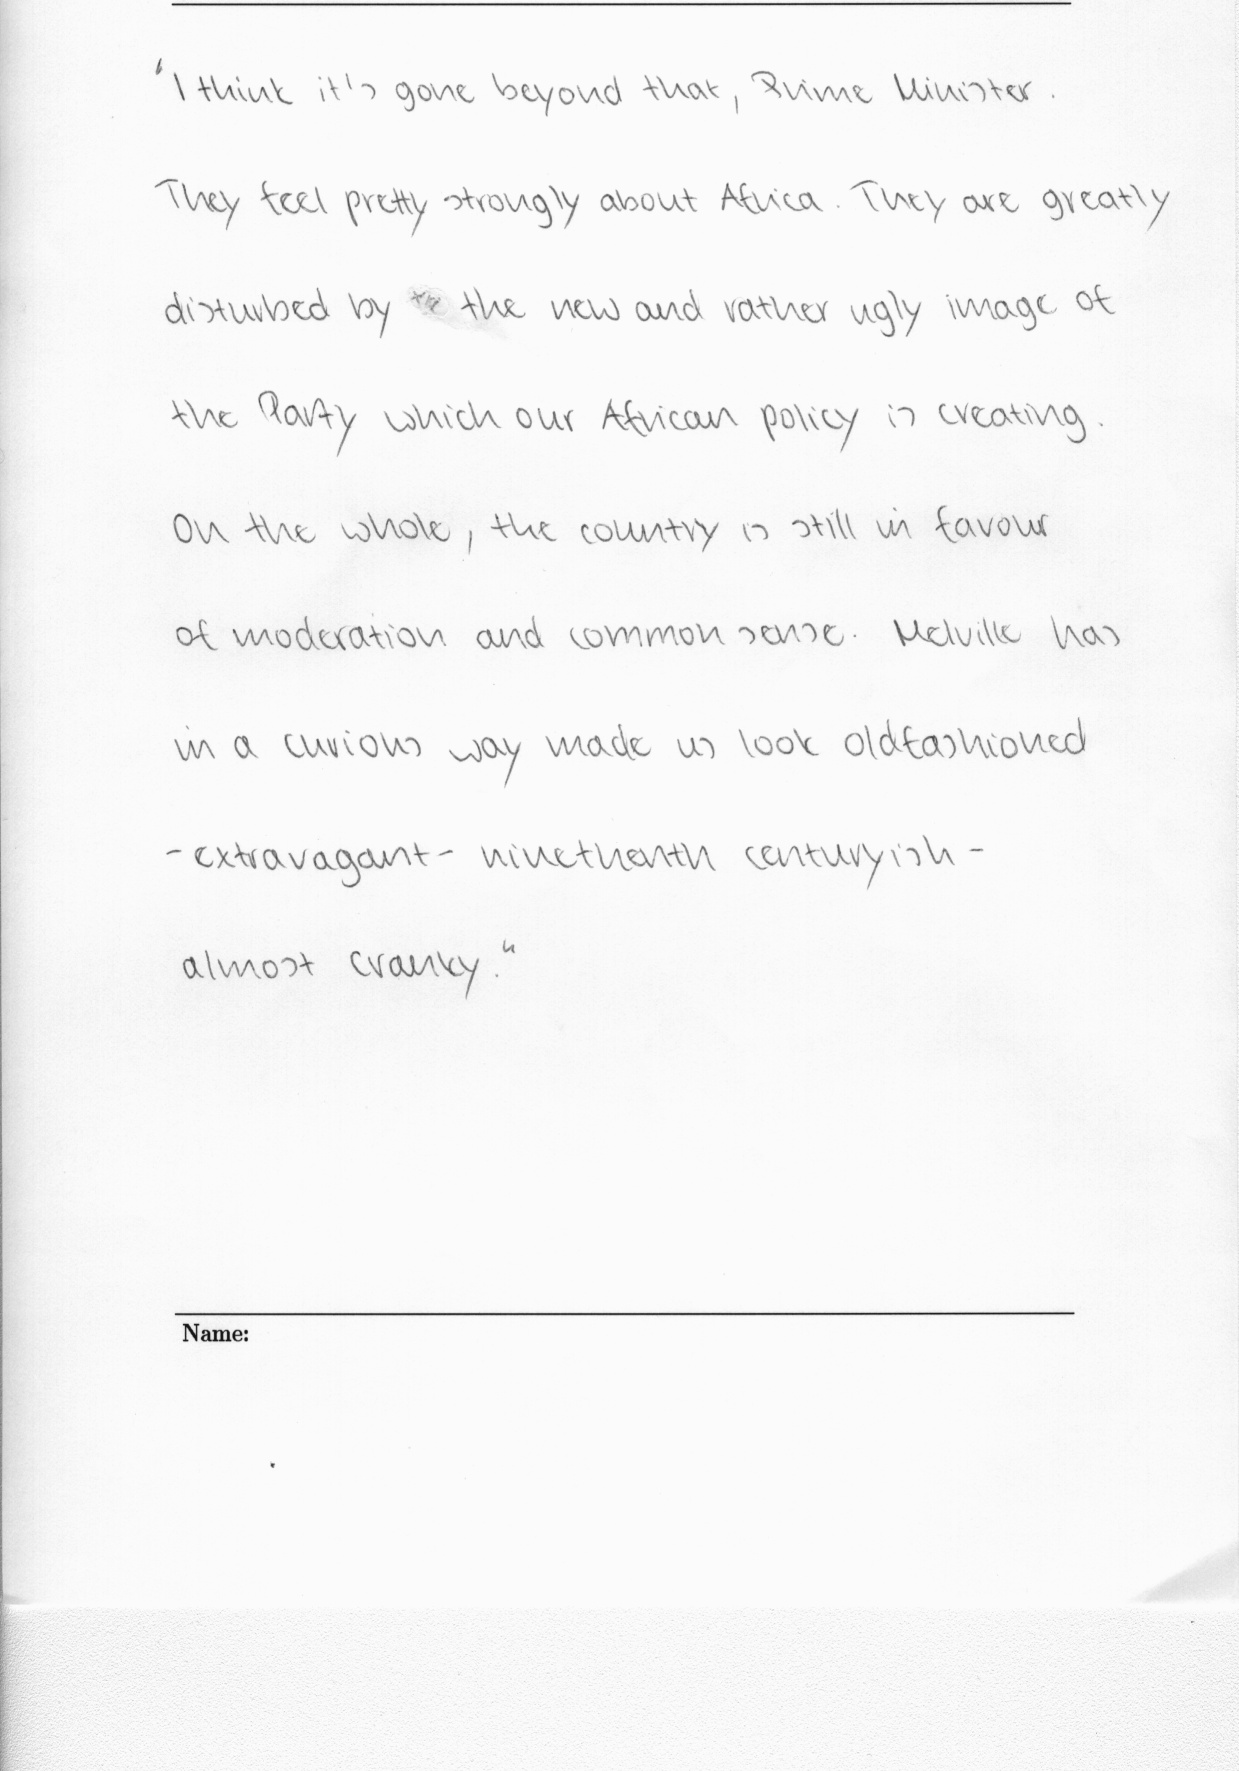 "I think it's gone beyond that, Prime Minister.
They feel pretty strongly about Africa. They are greatly
disturbed by the new and rather ugly image of
the Party which our African policy is creating.
On the whole, the country is still in favour
of moderation and common sense. Melville has
in a curious way made us look oldfashioned
- extravagant - ninethenth centuryish -
almost cranky."
Name: